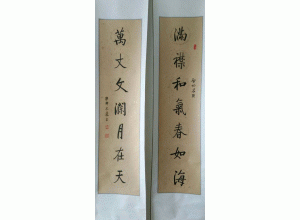 满襟和氣春如海
萬丈文瀾月在天